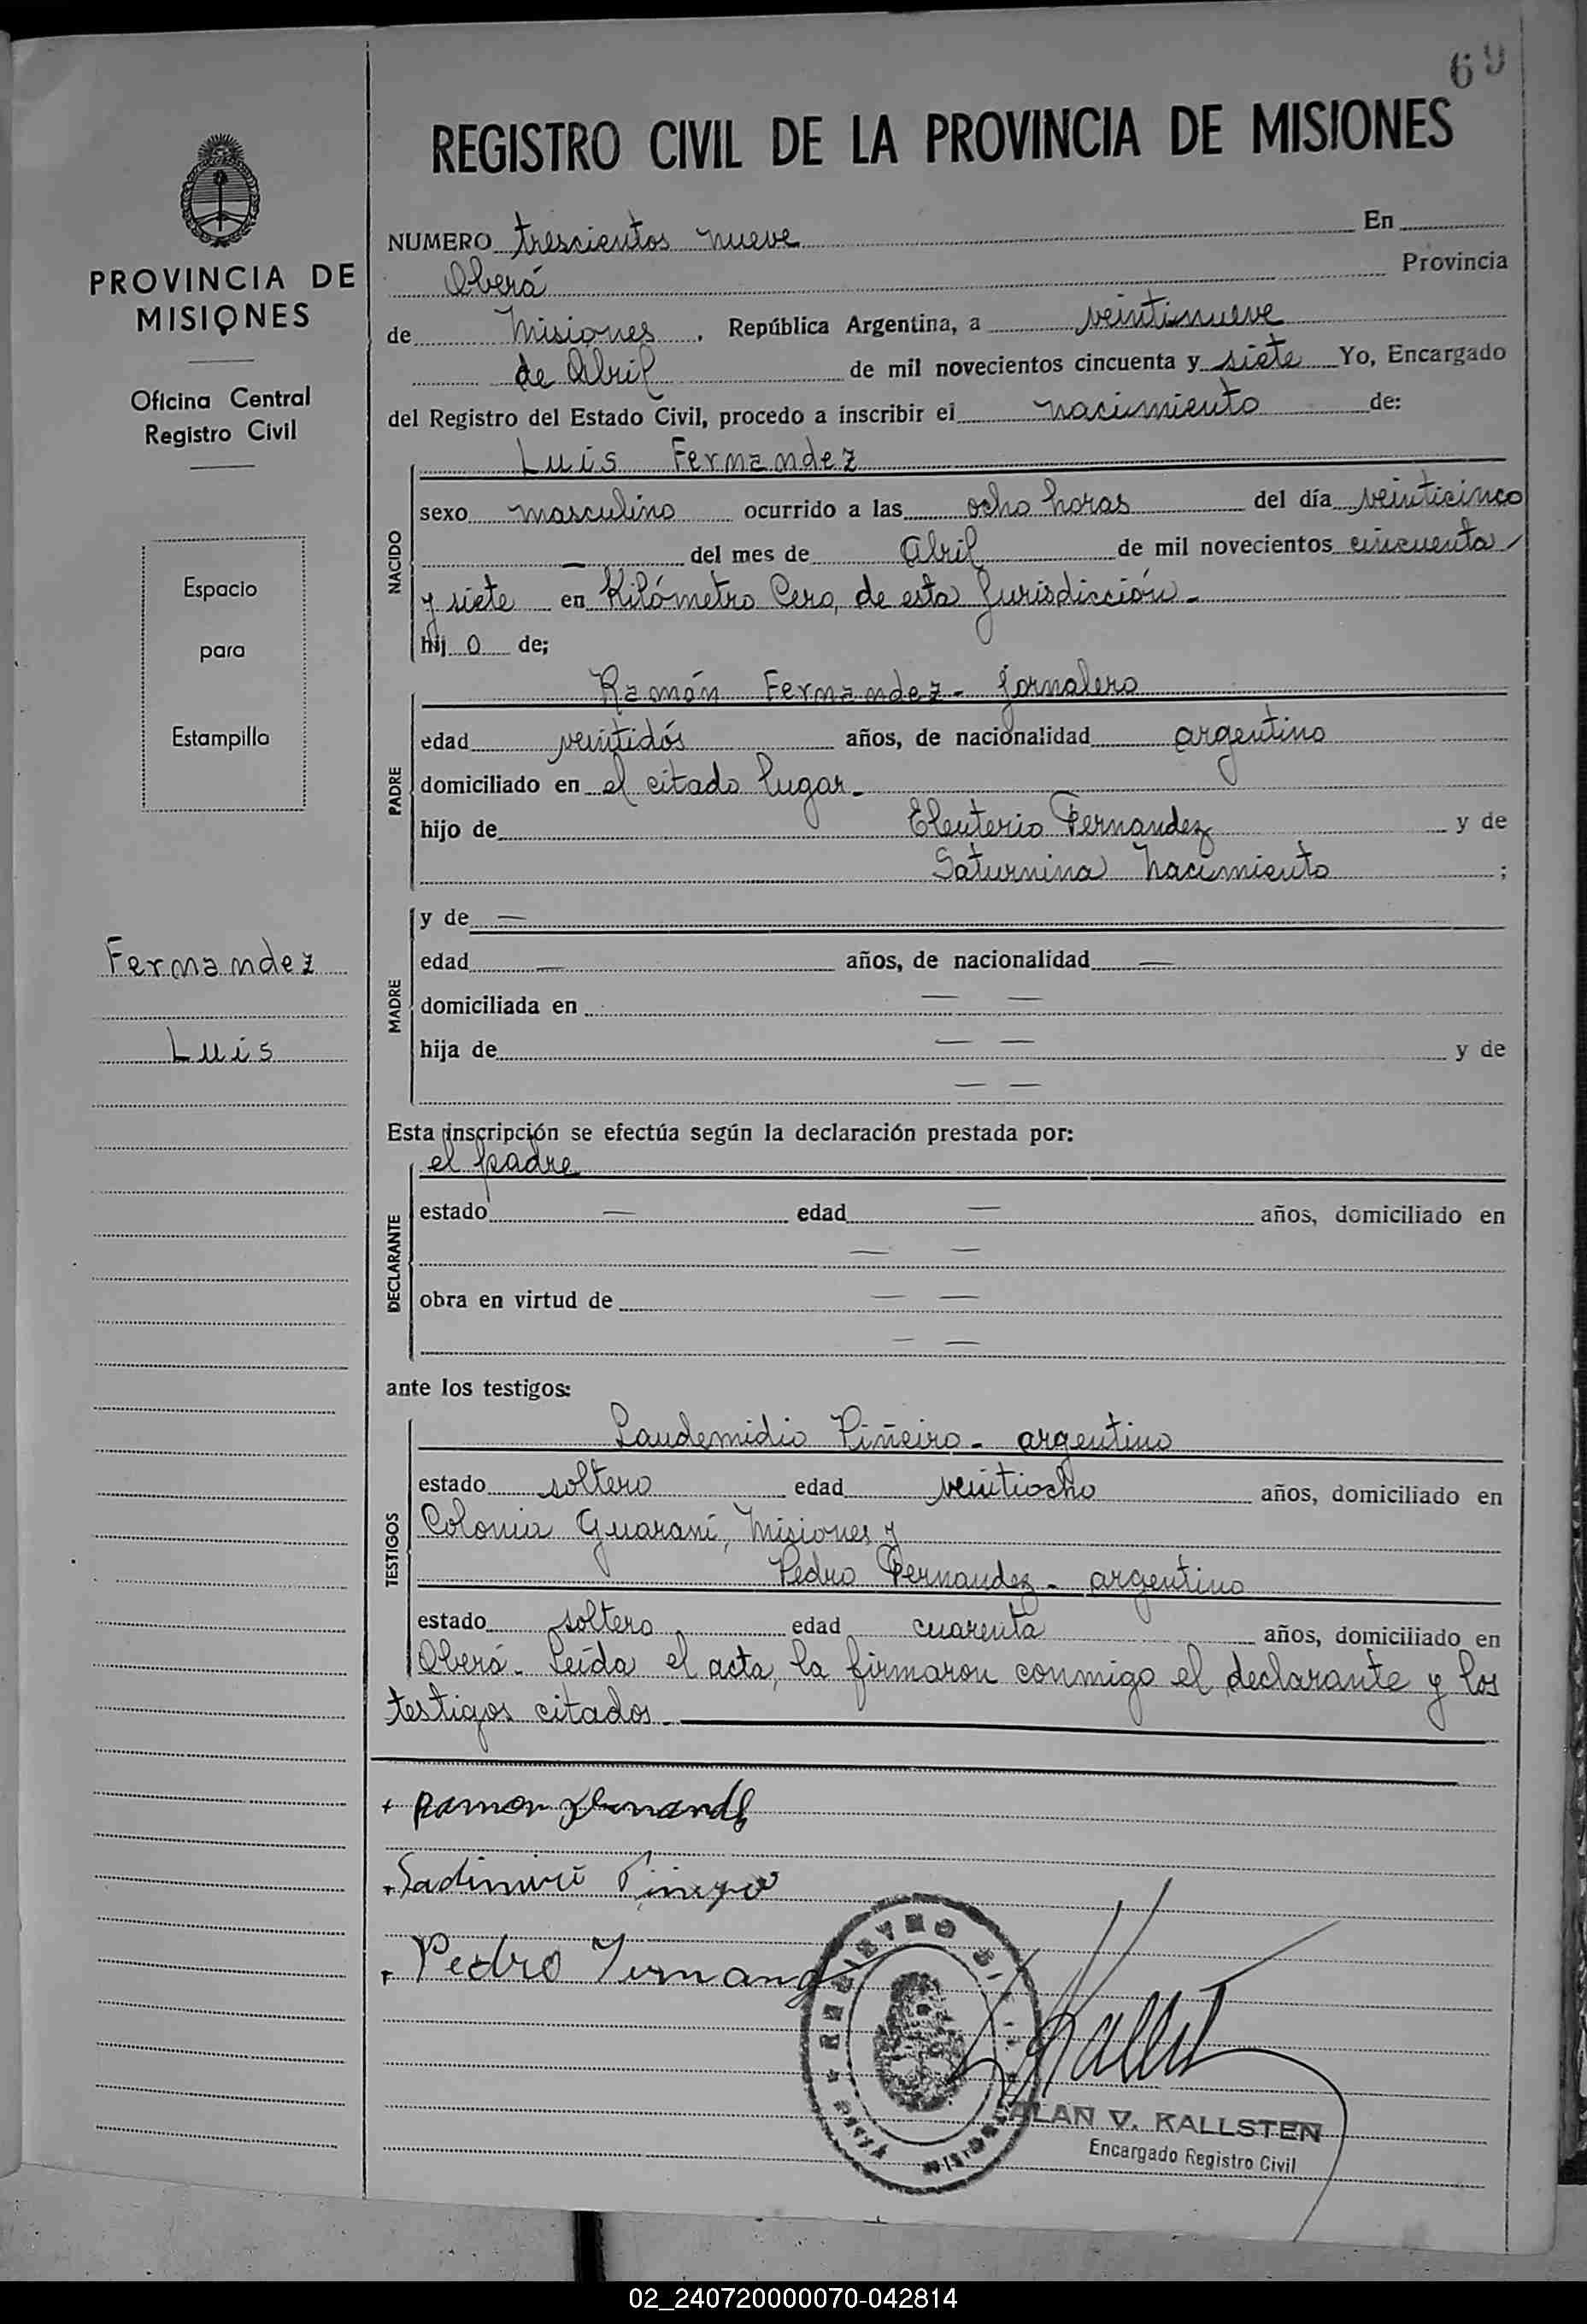 69
REGISTRO CIVIL DE LA PROVINCIA DE MISIONES
PROVINCIA DE
MISIONES
Oficina Central
Registro Civil
Espacio
para
Estampilla
Fernandez
Luis
NUMERO trescientos nueve En
Oberá Provincia
de Misiones, República Argentina, a veintinueve
de Abril de mil novecientos cincuenta y siete Yo, Encargado
del Registro del Estado Civil, procedo a inscribir el nacimiento de:
NACIDO
Luis Fernandez
sexo masculino ocurrido a las ocho horas del día veinticinco
— del mes de Abril de mil novecientos cincuenta
y siete en Kilómetro Cero, de esta Jurisdicción.-
hij o de;
PADRE
Ramón Fernandez - Jornalero
edad veintidós años, de nacionalidad argentino
domiciliado en el citado lugar.-
hijo de Eleuterio Fernandez y de
Saturnina Nacimiento ;
MADRE
y de —
edad — años, de nacionalidad —
domiciliada en — —
hija de — — y de
— —
Esta inscripción se efectúa según la declaración prestada por:
DECLARANTE
el padre
estado — edad — años, domiciliado en
— —
obra en virtud de — —
— —
ante los testigos:
TESTIGOS
Laudemidio Piñeiro - argentino
estado soltero edad veintiocho años, domiciliado en
Colonia Guaraní, Misiones y
Pedro Fernandez - argentino
estado soltero edad cuarenta años, domiciliado en
Oberá.- Leída el acta, la firmaron conmigo el declarante y los
testigos citados.-
Ramon Fernandez
Pedro Fernand
ALAN V. KALLSTEN
Encargado Registro Civil
02_240720000070-042814